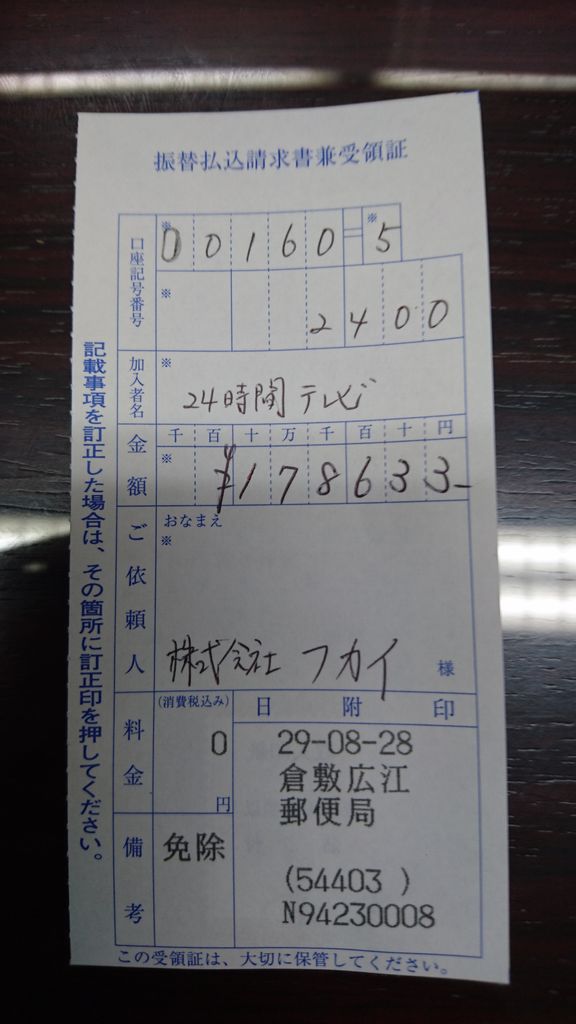 振替払込請求書兼受領証
口座記号番号
※
00160=5
※
※
2400
加入者名
※
24時間テレビ
金額
千百十万千百十円
※
¥178633-
ご依頼人
おなまえ
※
株式会社 フカイ 様
料金
(消費税込み)
0
円
日附印
29-08-28
倉敷広江
郵便局
(54403 )
N94230008
備考
免除
記載事項を訂正した場合は、その箇所に訂正印を押してください。
この受領証は、大切に保管してください。